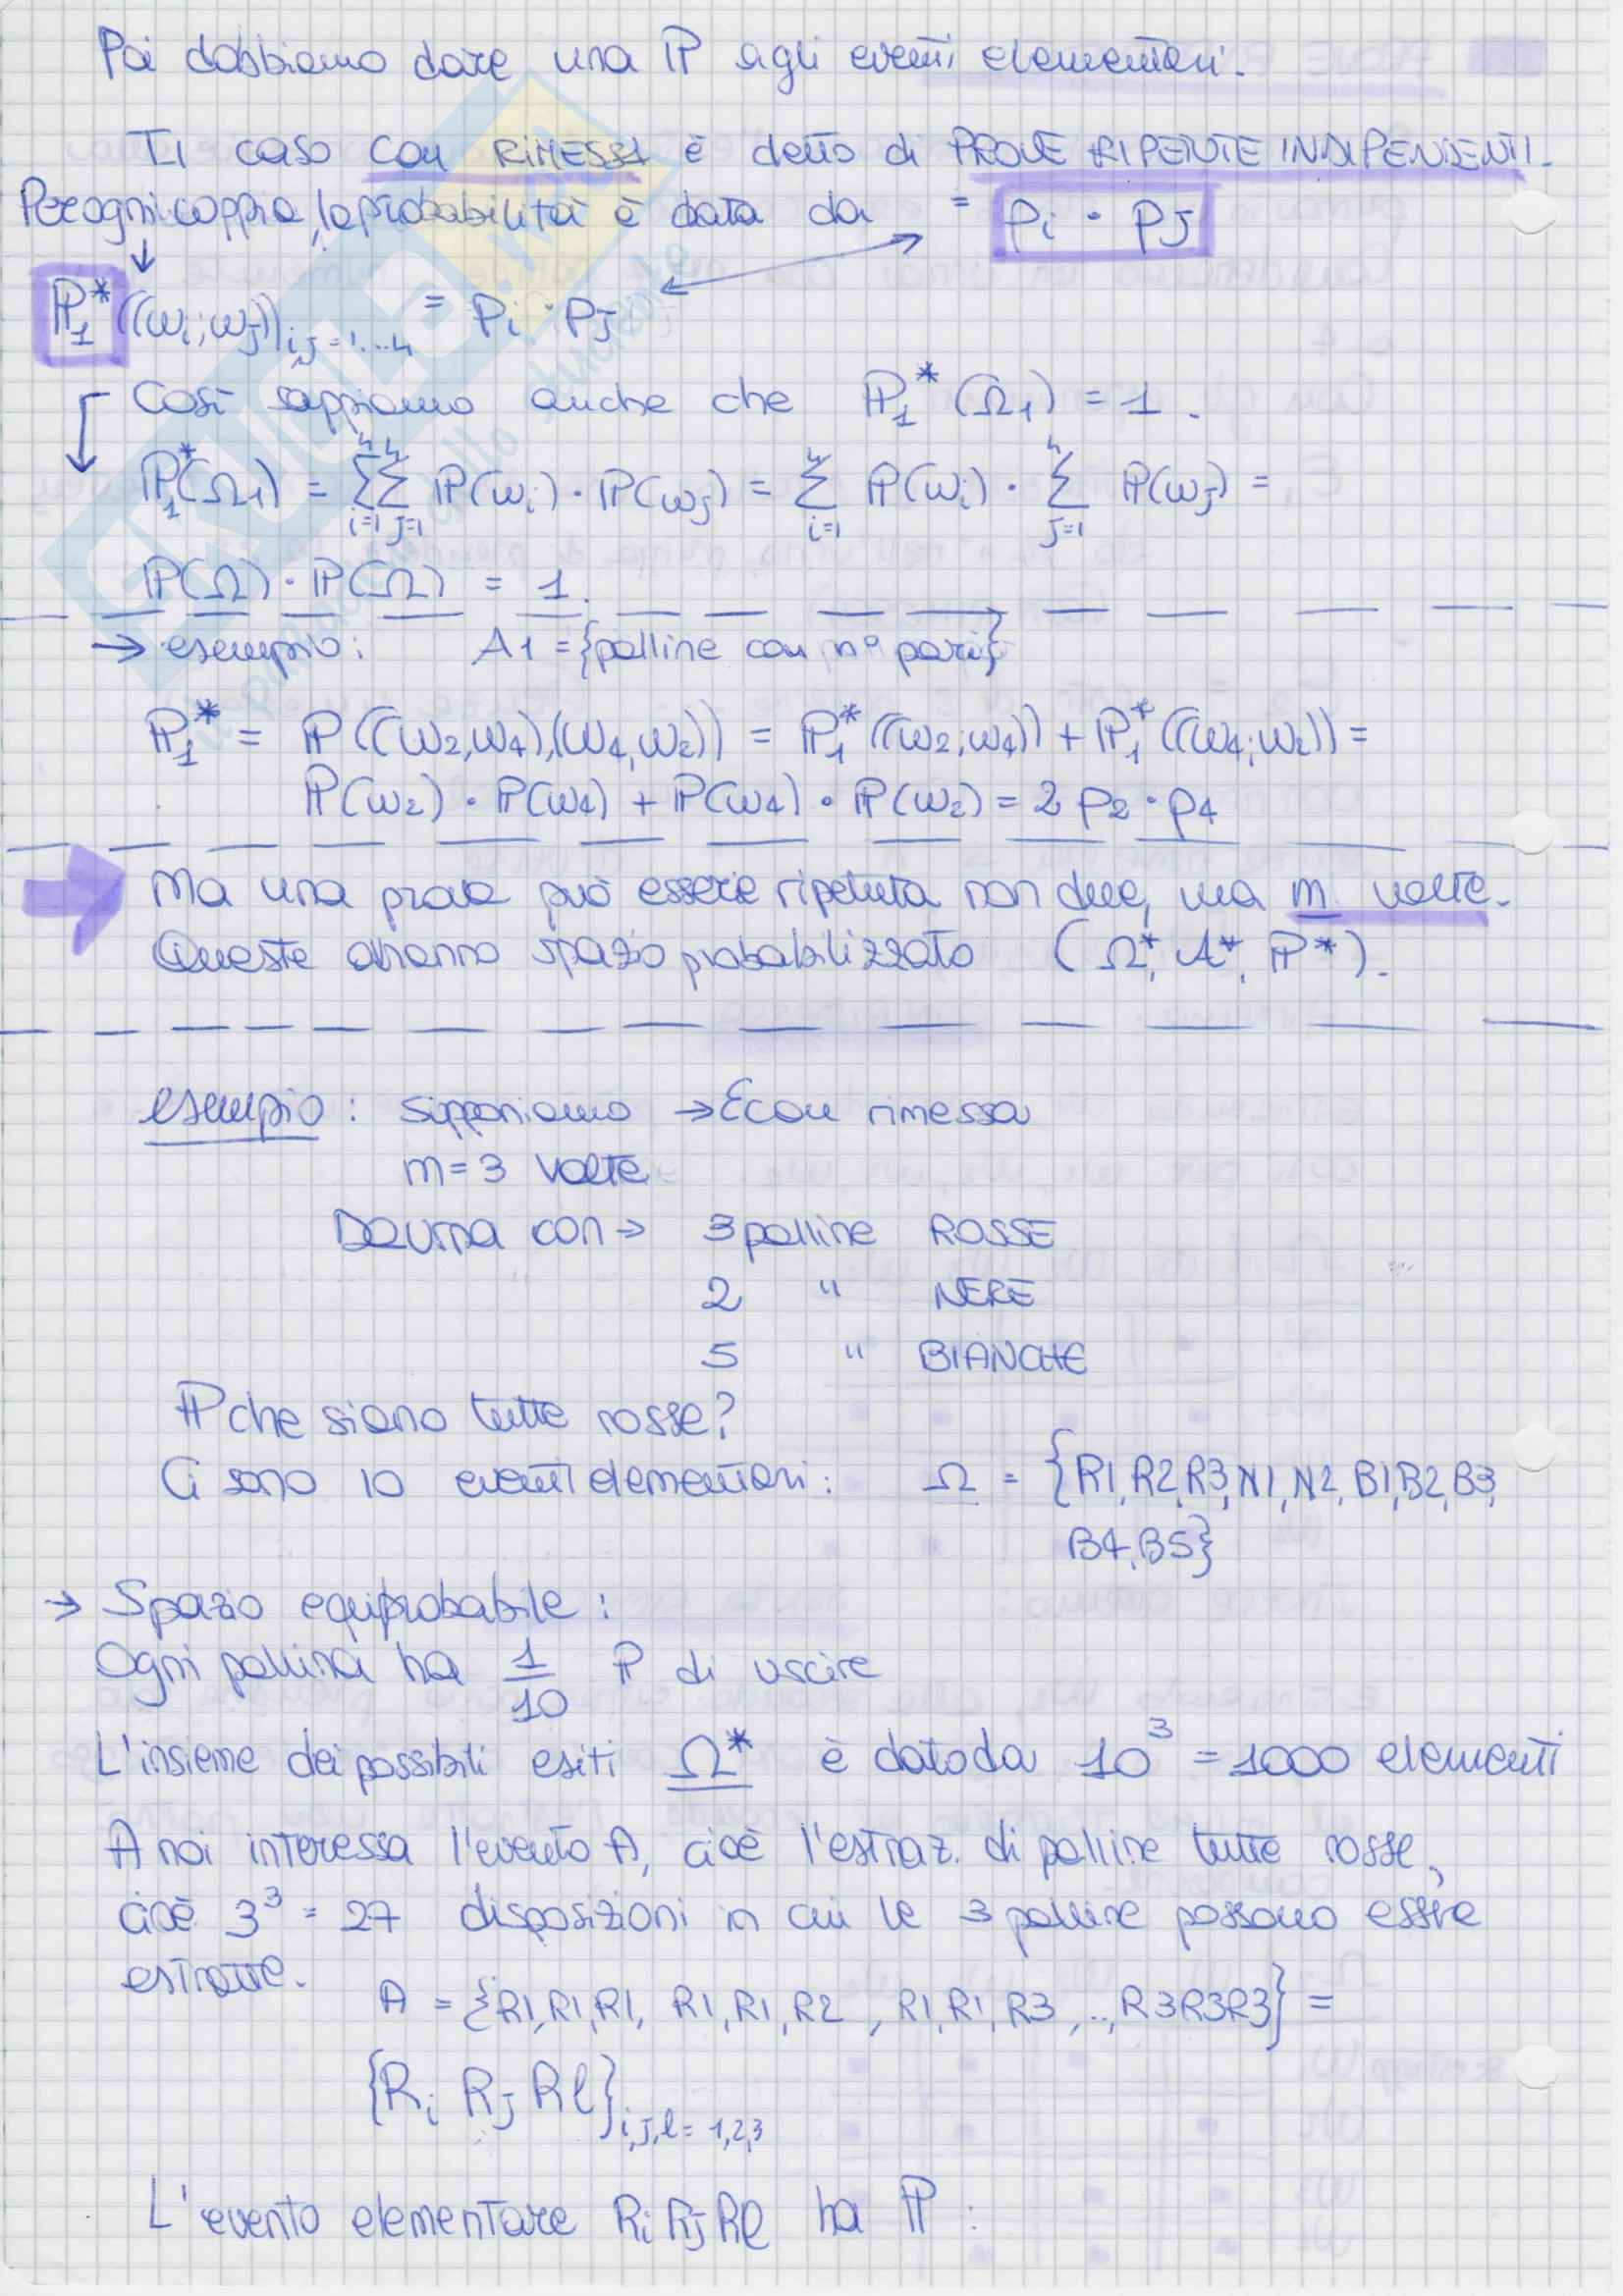 Poi dobbiamo dare una ℙ agli eventi elementari.
Il caso con RIMESSA è detto di PROVE RIPETUTE INDIPENDENTI.
Per ogni coppia, la probabilità è data da = pi · pJ
ℙ1*((ωi;ωJ))i,J=1...4 = pi · pJ
Così sappiamo anche che ℙ1*(Ω1) = 1.
ℙ1*(Ω1) = 4Σi=1 4ΣJ=1 ℙ(ωi) · ℙ(ωJ) = 4Σi=1 ℙ(ωi) · 4ΣJ=1 ℙ(ωJ) =
ℙ(Ω) · ℙ(Ω) = 1.
→ esempio: A1 = {palline con n° pari}
ℙ1* = ℙ((ω2,ω4),(ω4,ω2)) = ℙ1*((ω2;ω4)) + ℙ1*((ω4;ω2)) =
ℙ(ω2) · ℙ(ω4) + ℙ(ω4) · ℙ(ω2) = 2 p2 · p4
Ma una prova può essere ripetuta non due, ma m volte.
Queste avranno spazio probabilizzato (Ω*, A*, ℙ*).
esempio: supponiamo → E con rimessa
m = 3 volte
Da urna con → 3 palline ROSSE
2 " NERE
5 " BIANCHE
ℙ che siano tutte rosse?
Ci sono 10 eventi elementari: Ω = {R1, R2, R3, N1, N2, B1, B2, B3,
B4, B5}
→ Spazio equiprobabile:
Ogni pallina ha 1/10 ℙ di uscire
L'insieme dei possibili esiti Ω* è dato da 10³ = 1000 elementi
A noi interessa l'evento A, cioè l'estraz. di palline tutte rosse,
cioè 3³ = 27 disposizioni in cui le 3 palline possono essere
estratte.
A = {R1,R1,R1, R1,R1,R2, R1,R1,R3,..,R3R3R3} =
{Ri RJ Rℓ}i,J,ℓ= 1,2,3
L'evento elementare Ri RJ Rℓ ha ℙ: